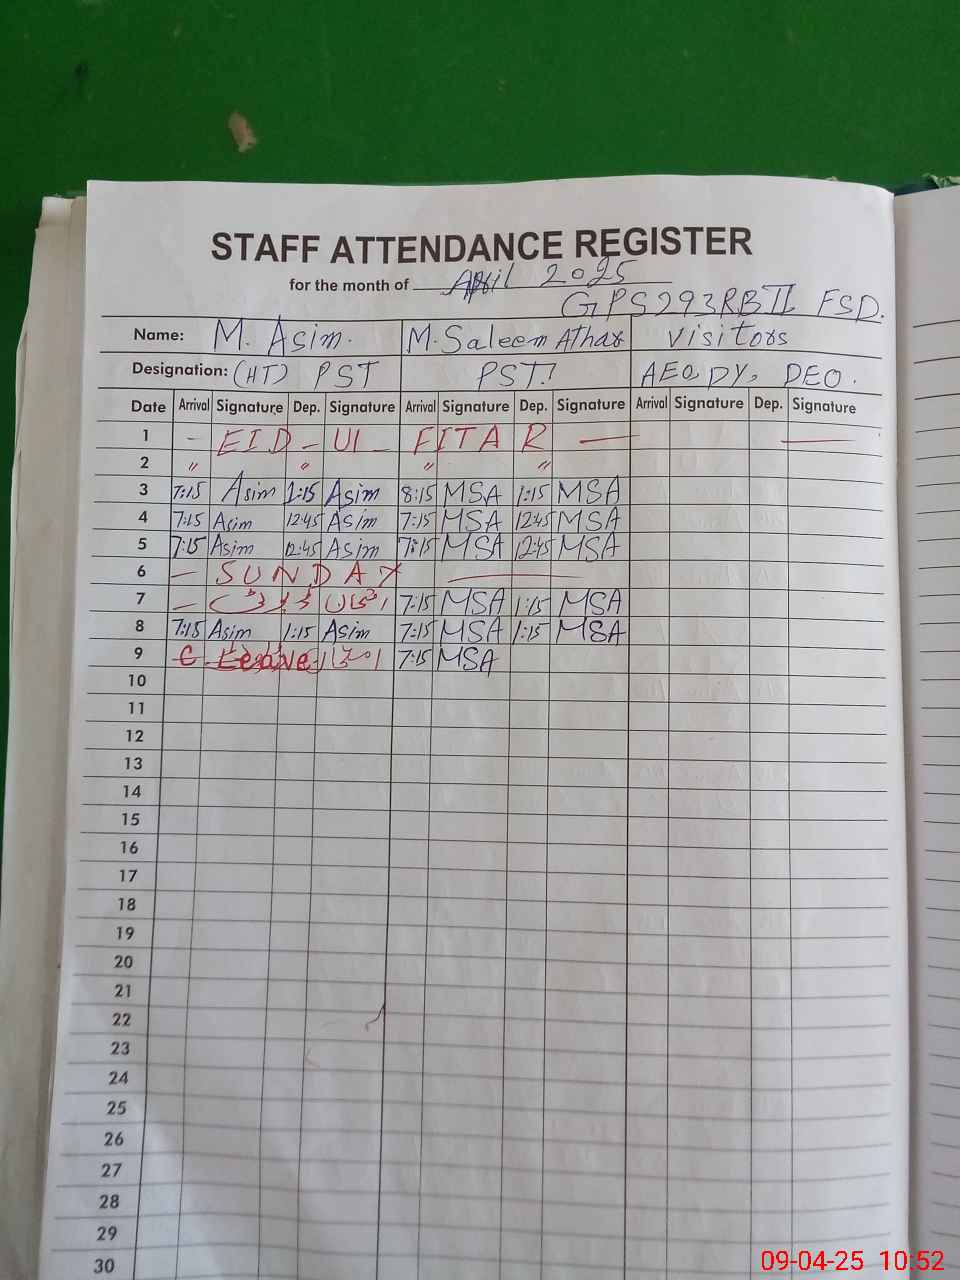 STAFF ATTENDANCE REGISTER
for the month of April 2025
GPS293RBII FSD.
Name: M. Asim. M. Saleem Athar Visitors
Designation: (HT) PST PST! AEO, DY, DEO.
Date Arrival Signature Dep. Signature Arrival Signature Dep. Signature Arrival Signature Dep. Signature
1 - EID - UL - FITAR -
2 " " " "
3 7:15 Asim 1:15 Asim 8:15 MSA 1:15 MSA
4 7:15 Asim 12:45 Asim 7:15 MSA 12:45 MSA
5 7:15 Asim 12:45 Asim 7:15 MSA 12:45 MSA
6 - SUNDAY
7 - 7:15 MSA 1:15 MSA
8 7:15 Asim 1:15 Asim 7:15 MSA 1:15 MSA
9 C Leave 7:15 MSA
10
11
12
13
14
15
16
17
18
19
20
21
22
23
24
25
26
27
28
29
30
09-04-25 10:52